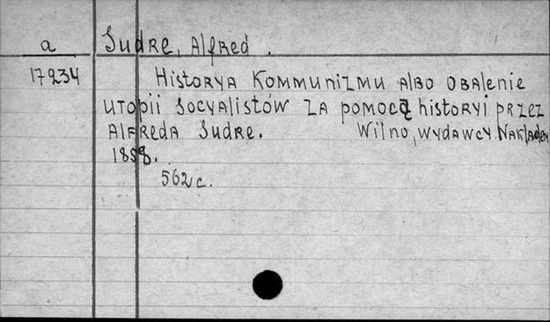 a Sudre, Alfred.
17234 Historya Kommunizmu albo obalenie
utopii Socyalistów za pomocą historyi przez
Alfreda Sudre. Wilno, wydawcy Nakładem
1858.
562 c.